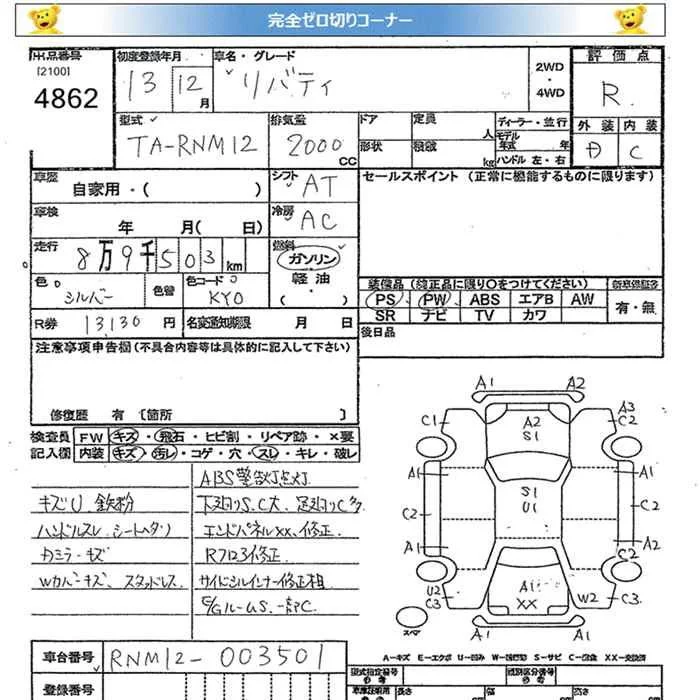 完全ゼロ切りコーナー
出品番号
[2100]
4862
初度登録年月
13 12 月
車名・グレード
リバティ
2WD
・
4WD
評価点
R
型式
TA-RNM12
排気量
2000 CC
ドア
定員
人
形状
積載
kg
ディーラー・並行
モデル
年式 年
ハンドル 左・右
外装 内装
D C
車歴
自家用・( )
シフト
AT
セールスポイント (正常に機能するものに限ります)
車検
年 月( 日)
冷房
AC
走行
8万9千503 km
燃料
ガソリン
軽油
・( )
色
シルバー
色替
色コード
KY0
装備品 (純正品に限り〇をつけてください)
新車保証書
PS PW ABS エアB AW
SR ナビ TV カワ
有・無
R券 13,130 円
名変通知期限 月 日
後日品
注意事項申告欄(不具合内容等は具体的に記入して下さい)
修復歴 有 [箇所 ]
検査員
記入欄
FW キズ・飛石・ヒビ割・リペア跡・×要
内装 キズ・汚レ・コゲ・穴・スレ・キレ・破レ
ABS警告灯点灯
キズU 鉄粉
下廻りS.C大 足廻りC多
ハンドルスレ シートヘタリ
エンドパネルXX、修正
Dミラーキズ
Rフロア修正
Wカバーキズ スタッドレス
サイドシルインナー修正相
E/GルームS.一部C
A1 A2
C1 A2 S1 A3 C2
A1 A1
C2 S1 U1 C2
A1 C2 A2
U2 C3 A1 XX W2 C3
A1 A1
スペア
A-キズ E-エクボ U-凹み W-補修跡 S-サビ C-腐食 XX-交換済
車台番号 RNM12-003501
登録番号
型式指定番号
類別区分番号
長さ
幅
高さ